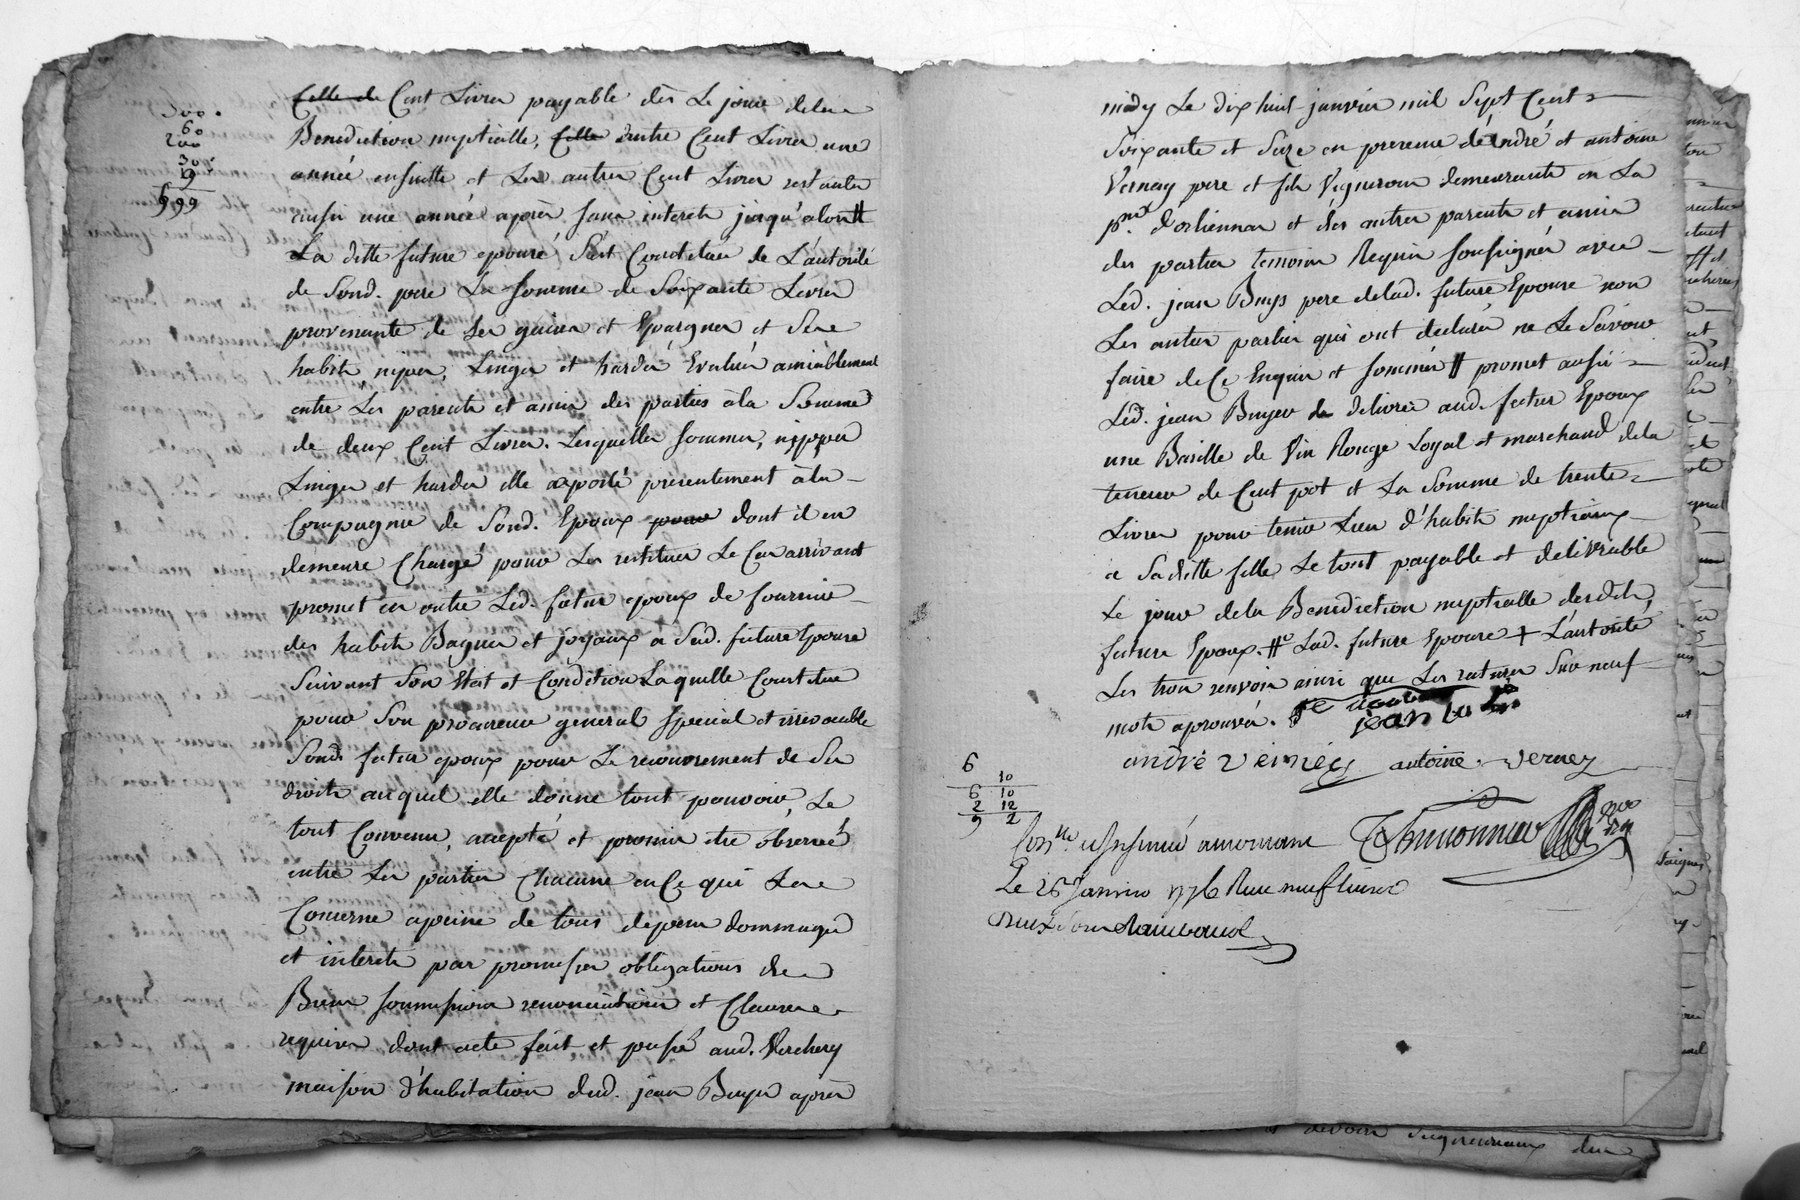 300.
60
200
30
9
599
Celle de Cent Livres payable dès Le jour dela
Benediction nuptialle, Celle autre Cent Livres une
année ensuitte et Les autres Cent Livres restantes
aussi une année après sans interets jusqu'alors #
La ditte future epouse S'est Constituée de L'autorité
de Sond. pere La Somme de Soixante Livres
provenante de Ses gains et Epargnes et Ses
habits nipes, Linges et hardes Evalués amiablement
entre Les parents et amis des parties àla Somme
de deux Cent Livres. Lesquelles sommes, nippes
Linges et hardes elle a porté presentement àla
Compagnie de Sond. Epoux pour dont il en
demeure Chargé pour Les restituer Le Cas arrivant
promet en outre Led. futur epoux de fournir
des habits Bagues et joyaux a Sad. future Epouse
Suivant Son Etat et Condition Laquelle Constitue
pour Son procureur general Special et irrevocable
Sond. futur epoux pour Le recouvrement de Ses
droits auquel elle donne tout pouvoir, Le
tout Convenu, accepté et promis etre observé
entre Les parties Chacune en Ce qui Les
Concerne apeine de tous depens dommages
et interets par promesses obligations de
Biens soumissions renonciations et Clauses
requises dont acte fait et passé aud. Vercheny
maison d'habitation dud. jean Buyer après
midy Le dix huit janvier mil Sept Cent
Soixante et Seze en presence de André et antoine
Vernay pere et fils Vignerons demeurants en La
pse. d'orlienas et des autres parents et amis
des parties temoins Requis soussignés avec
Led. jean Buys pere delad. future Epouse non
Les autres parties qui ont declaré ne Le Savoir
faire de Ce Enquis et sommés # promet aussi
Led. jean Buyer de delivrer aud. futur Epoux
une Barille de Vin Rouge Loyal et marchand dela
teneur de Cent pot et La Somme de trente
Livres pour tenir Lieu d'habits nuptiaux
a Saditte fille Le tout payable et delivrable
Le jour dela Benediction nuptialle desdits
futurs Epoux. # Lad. future Epouse + L'autorité
Les trois renvois ainsi que Les ratures Sur neuf
mots aprouvés.
jean
andré verney antoine verney
6
10
6 10
2 12
9 2
Con.lle
Le 26 Janvier 1776 Reçu neuf livres